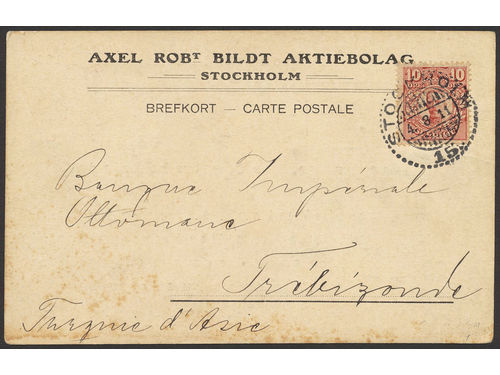 AXEL ROBT BILDT AKTIEBOLAG
STOCKHOLM
BREFKORT – CARTE POSTALE
10 10
STOCKHOLM
8.11
15
Banque Impériale
Ottomane
Trébizonde
Turquie d'Asie